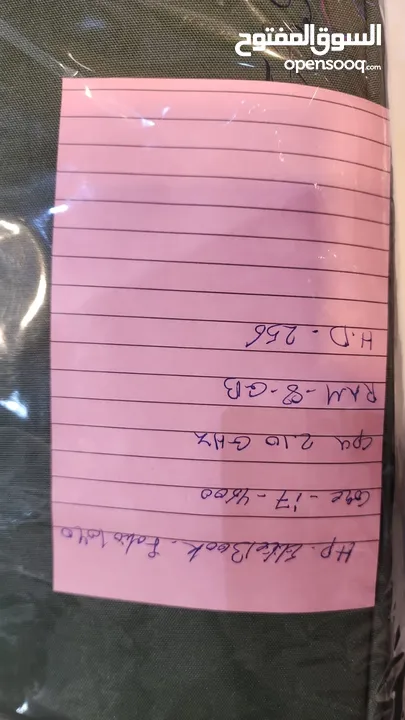 السوق المفتوح
opensooq.com
Hp. EliteBook. Folio 1040
Core - i7 - 4600
cpu 2.10 GHz
RAM - 8 - GB
H.D - 256